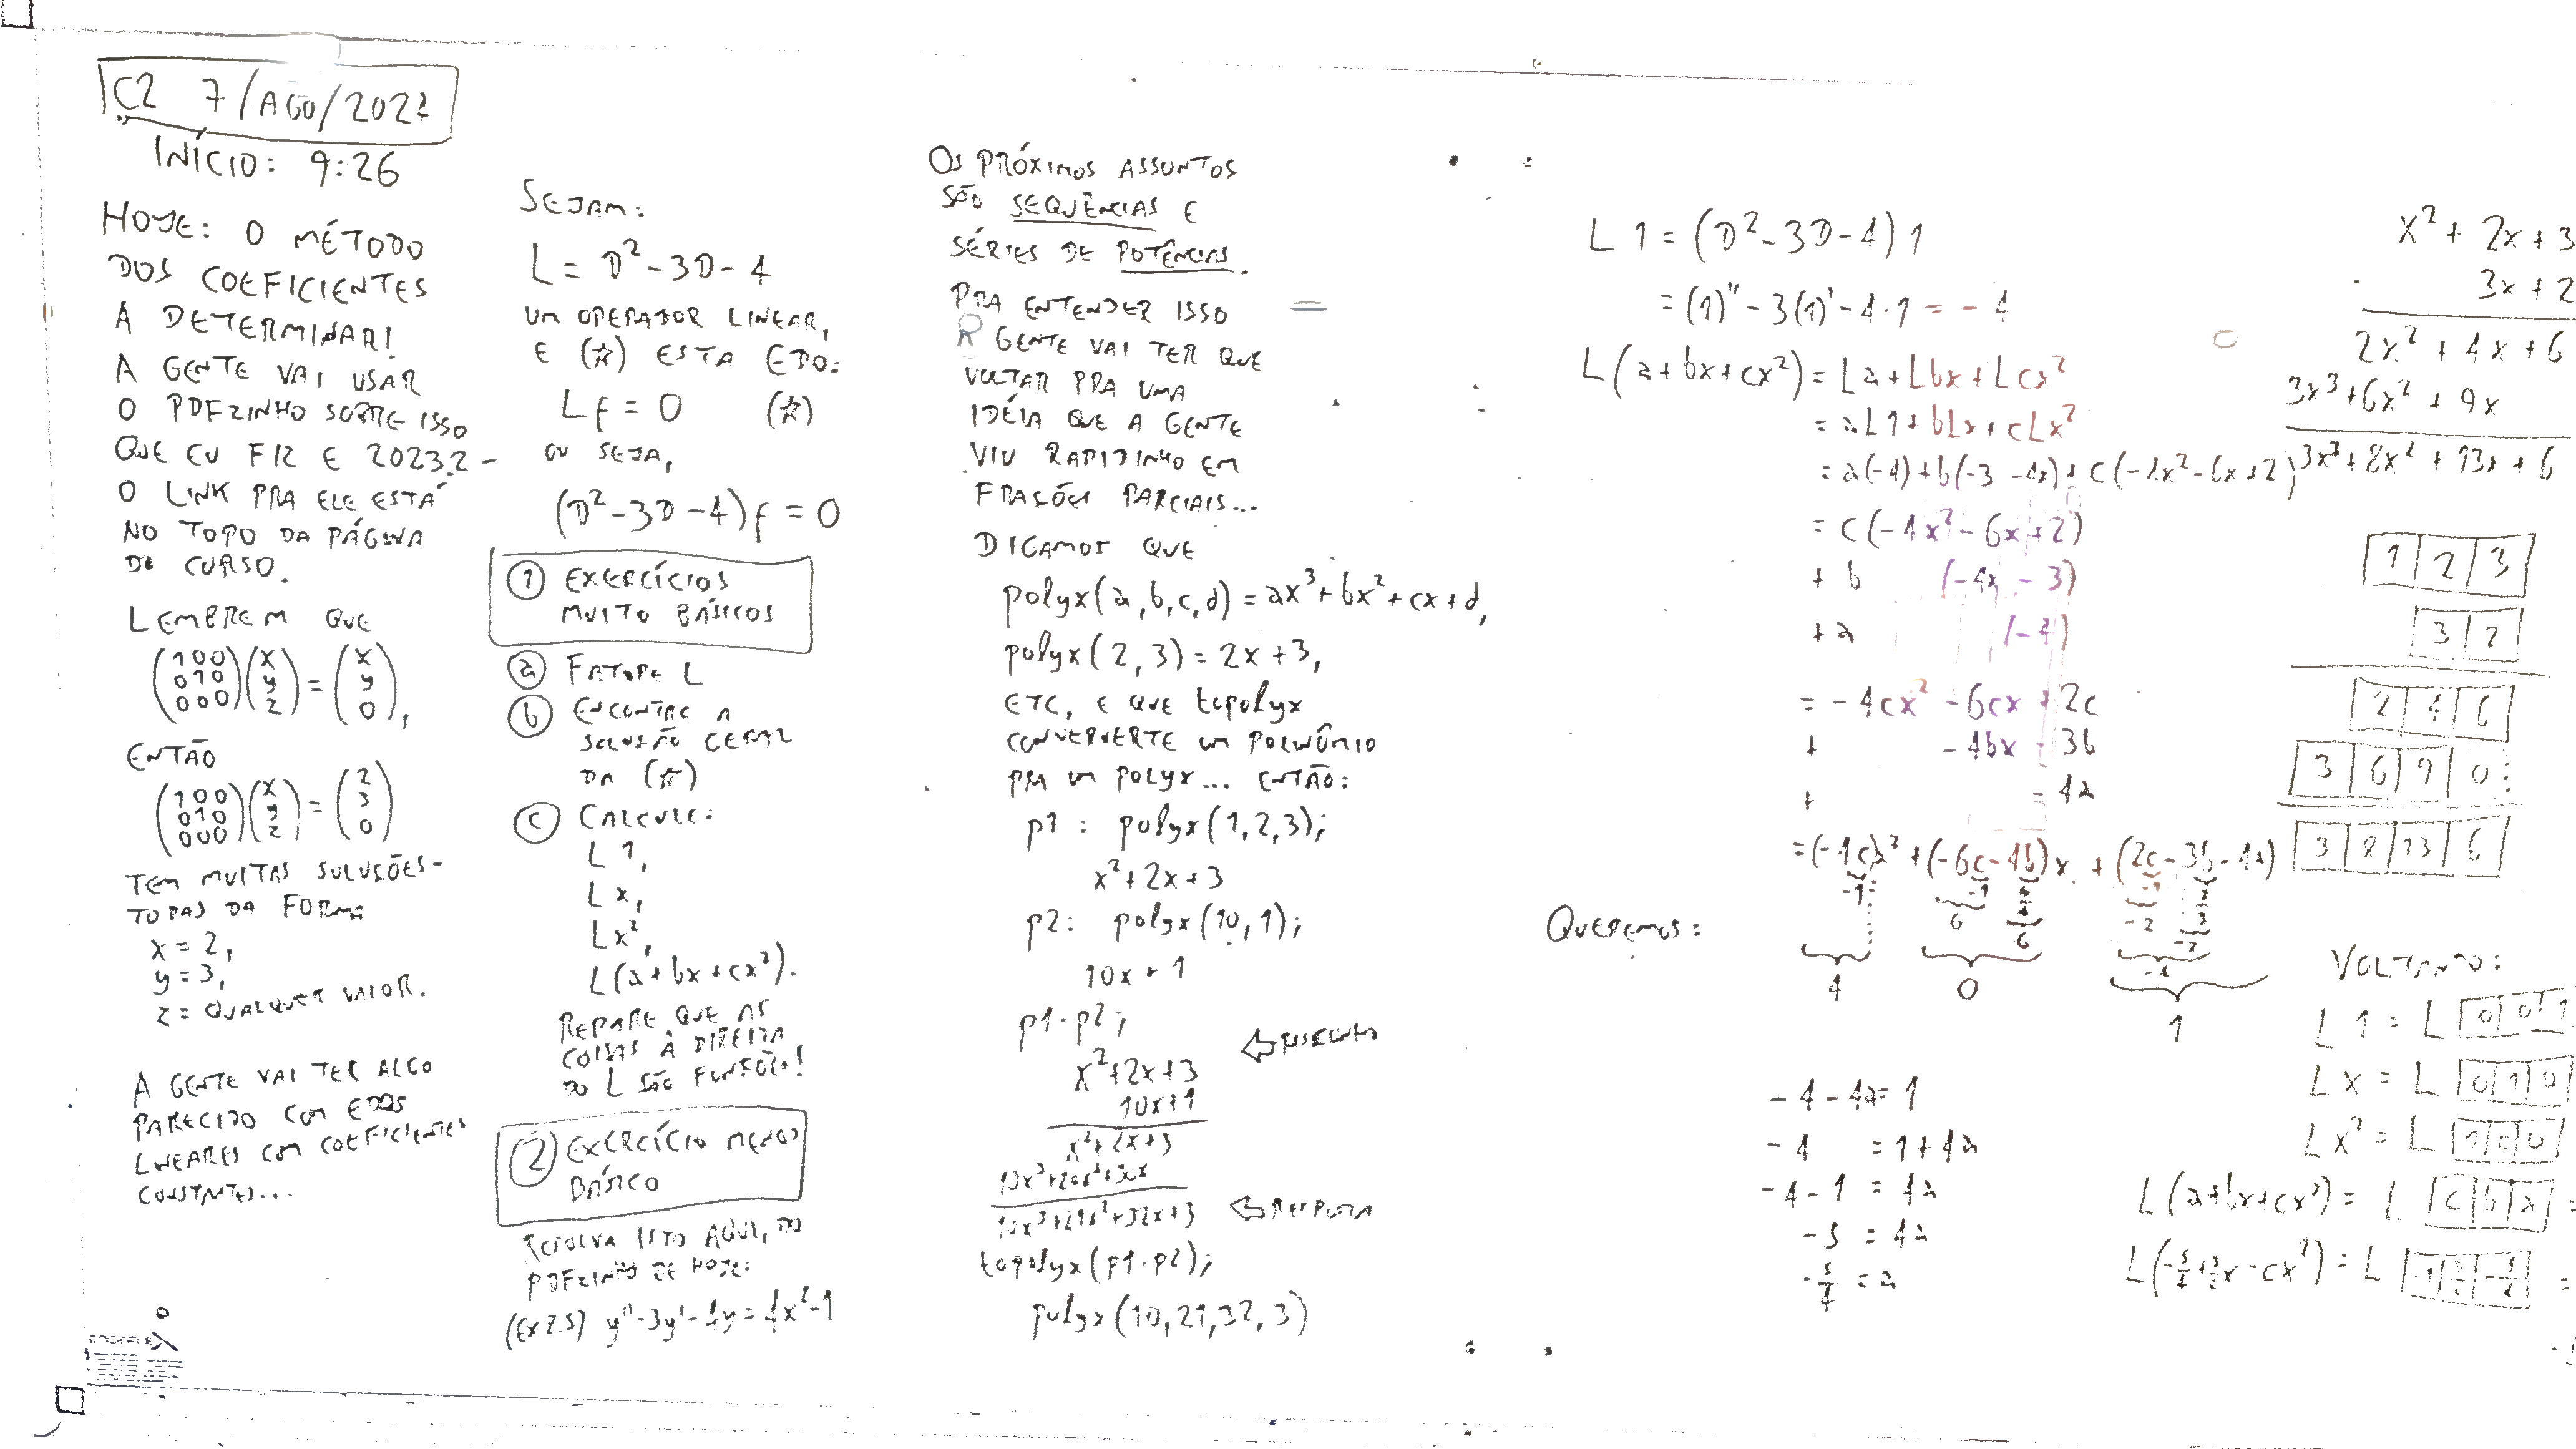 C2 7/AGO/2024
INÍCIO: 9:26
HOJE: O MÉTODO
DOS COEFICIENTES
A DETERMINAR!
A GENTE VAI USAR
O PDFZINHO SOBRE ISSO
QUE EU FIZ E 2023.2 -
O LINK PRA ELE ESTÁ
NO TOPO DA PÁGINA
DO CURSO.
LEMBREM QUE
(100 010 000)(x y z) = (x y 0),
ENTÃO
(100 010 000)(x y z) = (2 3 0)
TEM MUITAS SOLUÇÕES -
TODAS DA FORMA
x = 2,
y = 3,
z = QUALQUER VALOR.
A GENTE VAI TER ALGO
PARECIDO COM EDOS
LINEARES COM COEFICIENTES
CONSTANTES...
SEJAM:
L = D² - 3D - 4
UM OPERADOR LINEAR,
E (☆) ESTA EDO:
Lf = 0 (☆)
OU SEJA,
(D² - 3D - 4)f = 0
① EXERCÍCIOS
MUITO BÁSICOS
ⓐ FATORE L
ⓑ ENCONTRE A
SOLUÇÃO GERAL
DA (☆)
ⓒ CALCULE:
L 1,
L x,
L x²,
L(a + bx + cx²).
REPARE QUE AS
COISAS À DIREITA
DO L SÃO FUNÇÕES!
② EXERCÍCIO MENOS
BÁSICO
RESOLVA ISTO AQUI, DO
PDFZINHO DE HOJE:
(Ex 2.5) y'' - 3y' - 4y = 4x² - 1
OS PRÓXIMOS ASSUNTOS
SÃO SEQUÊNCIAS E
SÉRIES DE POTÊNCIAS.
PRA ENTENDER ISSO
A GENTE VAI TER QUE
VOLTAR PRA UMA
IDÉIA QUE A GENTE
VIU RAPIDINHO EM
FRAÇÕES PARCIAIS...
DIGAMOS QUE
polyx(a,b,c,d) = ax³ + bx² + cx + d,
polyx(2,3) = 2x + 3,
ETC, E QUE topolyx
CONVERVERTE UM POLINÔMIO
PRA UM POLYX... ENTÃO:
p1 : polyx(1,2,3);
x² + 2x + 3
p2: polyx(10,1);
10x + 1
p1·p2;
x² + 2x + 3
10x + 1
⇐ RASCUNHO
x² + 2x + 3
10x³ + 20x² + 30x
10x³ + 21x² + 32x + 3 ⇐ RESPOSTA
topolyx(p1·p2);
polyx(10,21,32,3)
L 1 = (D² - 3D - 4) 1
= (1)'' - 3(1)' - 4·1 = -4
L(a + bx + cx²) = La + Lbx + Lcx²
= aL1 + bLx + cLx²
= a(-4) + b(-3 - 4x) + c(-4x² - 6x + 2)
= c(-4x² - 6x + 2)
+ b (-4x - 3)
+ a (-4)
= -4cx² - 6cx + 2c
+ - 4bx - 3b
+ - 4a
= (-4c)x² + (-6c - 4b)x + (2c - 3b - 4a)
QUEREMOS:
4 0 1
-4 - 4a = 1
-4 = 1 + 4a
-4 - 1 = 4a
-5 = 4a
-5/4 = a
x² + 2x + 3
3x + 2
2x² + 4x + 6
3x³ + 6x² + 9x
3x³ + 8x² + 13x + 6
1 2 3
3 2
2 4 6
3 6 9 0
3 8 13 6
VOLTANDO:
L 1 = L 0 0 1
L x = L 0 1 0
L x² = L 1 0 0
L(a + bx + cx²) = L c b a =